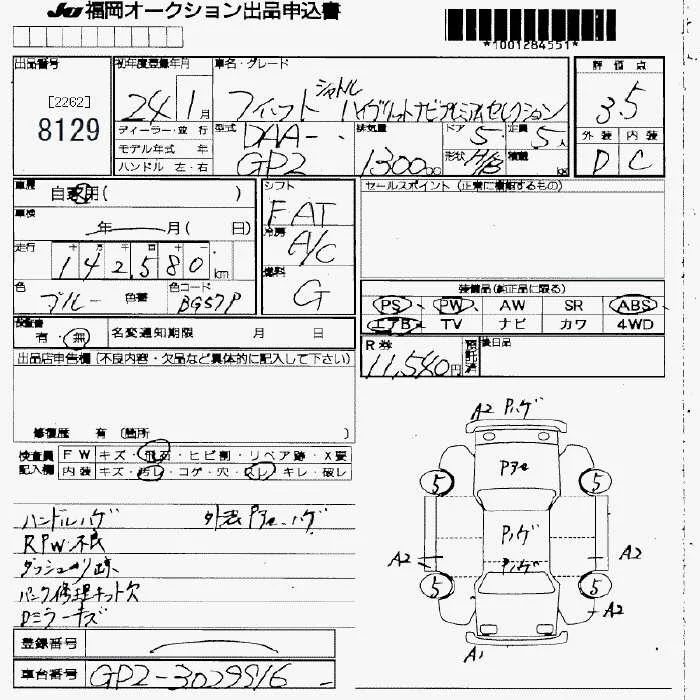 JU 福岡オークション出品申込書
*1001284551*
出品番号
[2262]
8129
初年度登録年月
24年1月
車名・グレード
フィット シャトル ハイブリット ナビプレミアムセレクション
評価点
3.5
外装 内装
D C
ディーラー・並行
モデル年式 年
ハンドル 左・右
型式
DAA-
GP2
排気量
1300cc
ドア
5
形状
H/B
定員
5人
積載
kg
車歴
自家用( )
車検
年 月( 日)
走行
十 万 千 百 十
142,580 km
色
ブルー
色替
色コード
BG57P
シフト
FAT
冷房
A/C
燃料
G
セールスポイント (正常に機能するもの)
装備品(純正品に限る)
PS PW AW SR ABS
エアB TV ナビ カワ 4WD
検査書
有・無
名変通知期限 月 日
R券
11,540円
預託済
後日品
出品店申告欄 (不良内容・欠品など具体的に記入して下さい)
修復歴 有 (箇所 )
検査員記入欄
FW キズ・飛石・ヒビ割・リペア跡・X要
内装 キズ・汚レ・コゲ・穴・スレ・キレ・破レ
ハンドルハゲ
RPW不良
ダッシュ 跡
パンク修理キット欠
Dミラーキズ
登録番号
車台番号
GP2-3029916
A2 Pハゲ
5
5
Pハゲ
Pハゲ
A2
A2
5
5
A2
A1